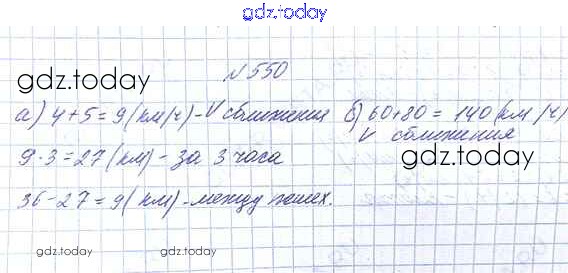 gdz.today
№550
gdz.today
а) 4+5=9(км/ч)-V сближения б) 60+80=140(км/ч)
V сближения
gdz.today
9·3=27(км)-за 3 часа
36-27=9(км)-между пешех.
gdz.today
gdz.today
gdz.today